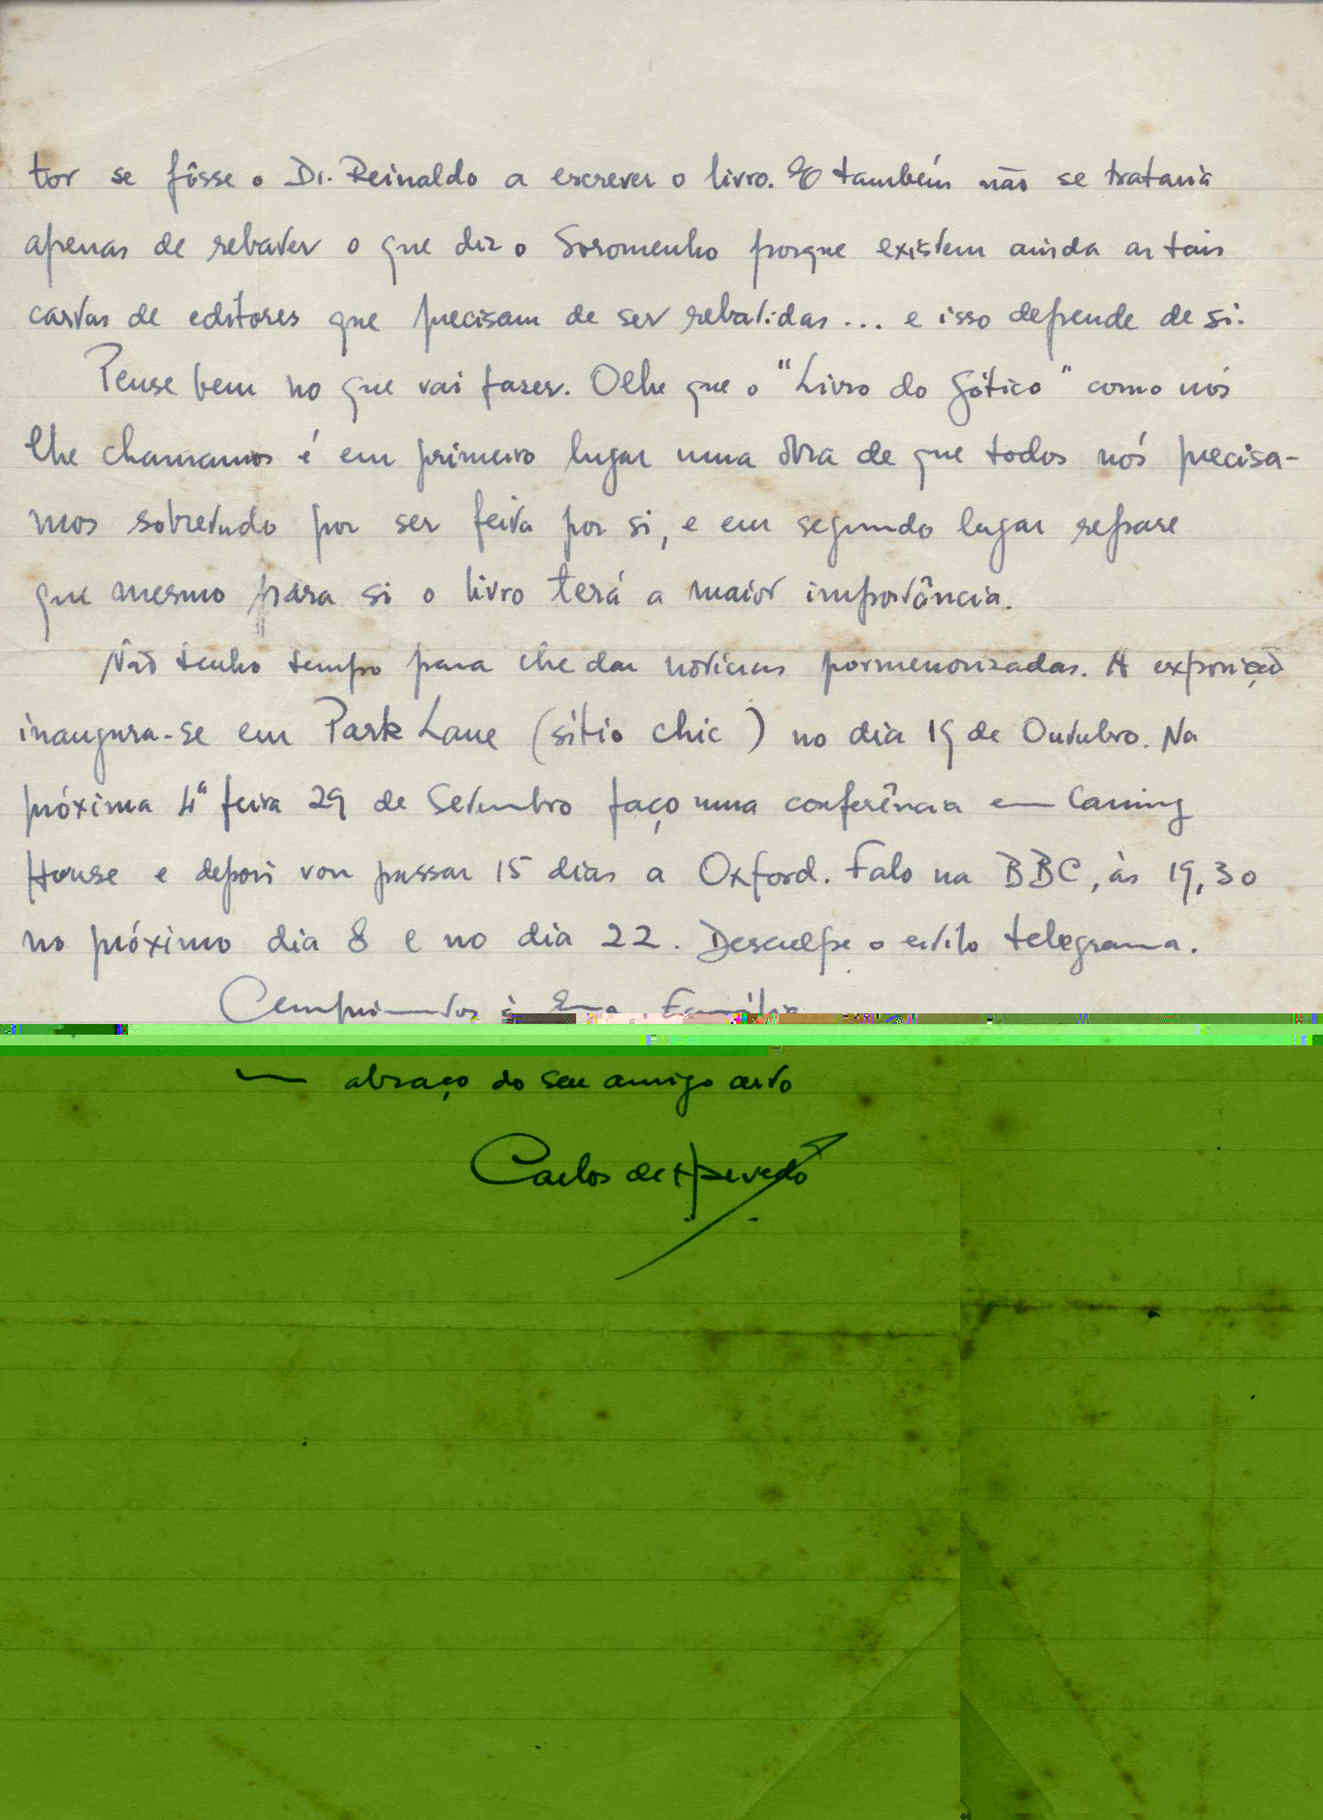 tor se fôsse o Dr. Reinaldo a escrever o livro. E também não se trataria
apenas de rebater o que diz o Soromenho porque existem ainda as tais
cartas de editores que precisam de ser rebatidas... e isso depende de si.
Pense bem no que vai fazer. Olhe que o "Livro do Gótico" como nós
lhe chamamos é em primeiro lugar uma obra de que todos nós precisa-
mos sobretudo por ser feita por si, e em segundo lugar repare
que mesmo para si o livro terá a maior importância.
Não tenho tempo para lhe dar notícias pormenorizadas. A exposição
inaugura-se em Park Lane (sítio chic) no dia 19 de Outubro. Na
próxima 4ª feira 29 de Setembro faço uma conferência em Canning
House e depois vou passar 15 dias a Oxford. Falo na BBC, às 19,30
no próximo dia 8 e no dia 22. Desculpe o estilo telegrama.
Cumprimentos à Exma. Família
um abraço do seu amigo certo
Carlos de Azevedo